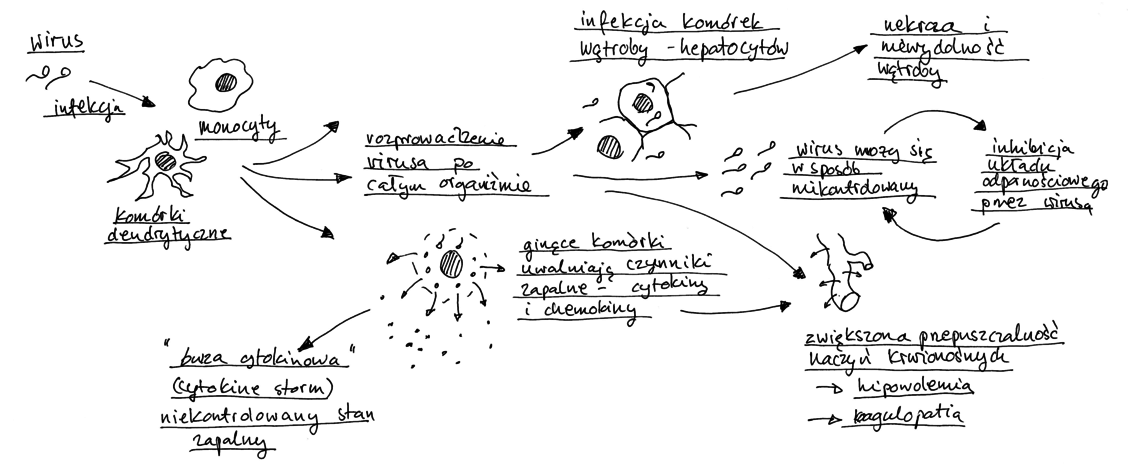 wirus
infekcja
monocyty
komórki
dendrytyczne
rozprowadzenie
wirusa po
całym organizmie
infekcja komórek
wątroby - hepatocytów
nekroza i
niewydolność
wątroby
wirus mnoży się
w sposób
niekontrolowany
inhibicja
układu
odpornościowego
przez wirusa
ginące komórki
uwalniają czynniki
zapalne - cytokiny
i chemokiny
"burza cytokinowa"
(cytokine storm)
niekontrolowany stan
zapalny
zwiększona przepuszczalność
naczyń krwionośnych
→ hipowolemia
→ koagulopatia